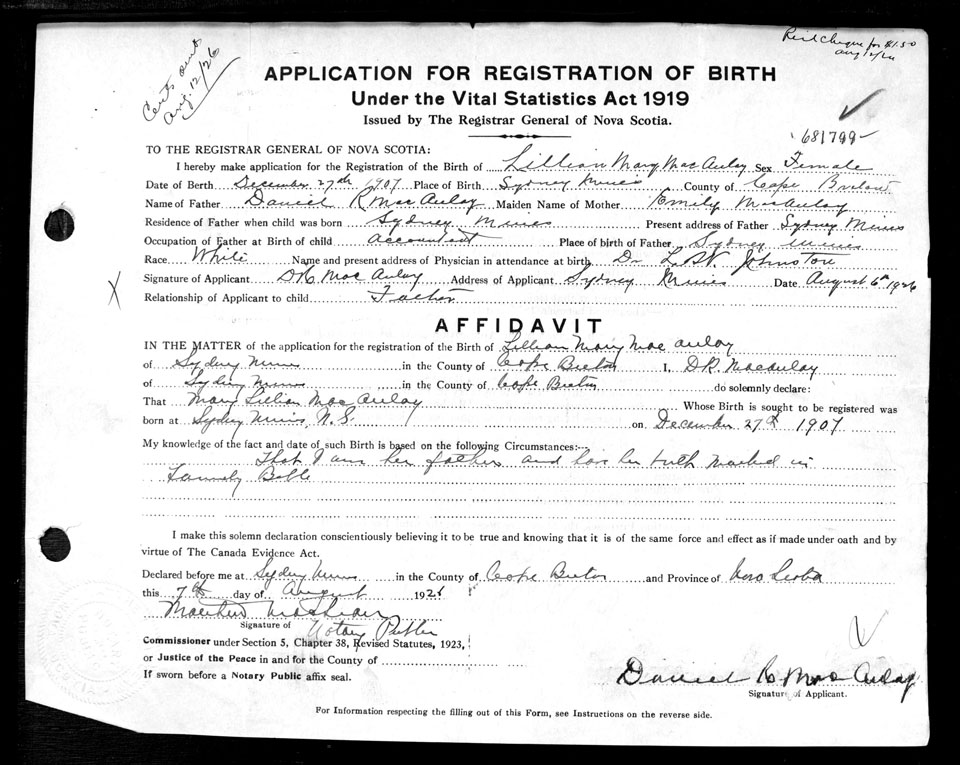 Recd Cheque for $1.50
Aug 12/26
Certs sent
Aug. 12/26
APPLICATION FOR REGISTRATION OF BIRTH
Under the Vital Statistics Act 1919
Issued by The Registrar General of Nova Scotia.
681799
TO THE REGISTRAR GENERAL OF NOVA SCOTIA:
I hereby make application for the Registration of the Birth of Lillian Mary MacAulay Sex Female
Date of Birth December 27th 1907 Place of Birth Sydney Mines County of Cape Breton
Name of Father Daniel R MacAulay Maiden Name of Mother Emily MacAulay
Residence of Father when child was born Sydney Mines Present address of Father Sydney Mines
Occupation of Father at Birth of child accountant Place of birth of Father Sydney Mines
Race White Name and present address of Physician in attendance at birth Dr L W Johnston
Signature of Applicant D R MacAulay Address of Applicant Sydney Mines Date August 6th 1926
X Relationship of Applicant to child Father
AFFIDAVIT
IN THE MATTER of the application for the registration of the Birth of Lillian Mary MacAulay
of Sydney Mines in the County of Cape Breton I, D R. MacAulay
of Sydney Mines in the County of Cape Breton do solemnly declare:
That Mary Lillian MacAulay Whose Birth is sought to be registered was
born at Sydney Mines N.S. on December 27th 1907
My knowledge of the fact and date of such Birth is based on the following Circumstances:--
That I am her father and has her birth marked in
Family Bible
I make this solemn declaration conscientiously believing it to be true and knowing that it is of the same force and effect as if made under oath and by
virtue of The Canada Evidence Act.
Declared before me at Sydney Mines in the County of Cape Breton and Province of Nova Scotia
this 7th day of August 1926
Signature of Notary Public
Commissioner under Section 5, Chapter 38, Revised Statutes, 1923,
or Justice of the Peace in and for the County of
If sworn before a Notary Public affix seal.
Daniel R MacAulay
Signature of Applicant.
For Information respecting the filling out of this Form, see Instructions on the reverse side.